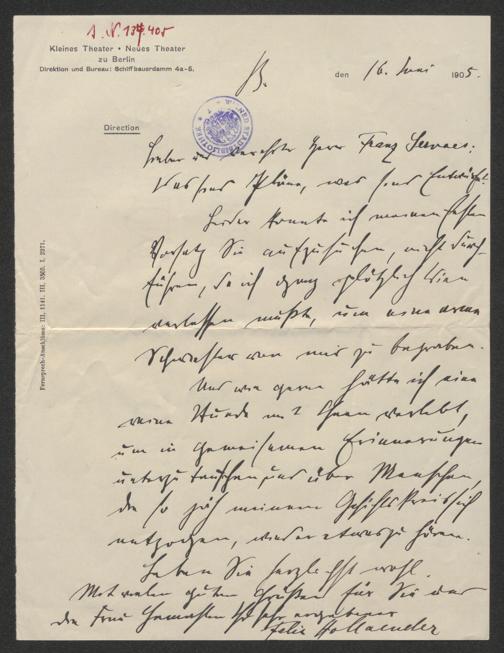 I. N. 137.405
Kleines Theater • Neues Theater
zu Berlin
Direktion und Bureau: Schiffbauerdamm 4a-5.
B. den 16. Juni 1905.
Direction
Lieber und verehrter Herr Franz Servaes:
Was sind Pläne, was sind Entwürfe!
Leider konnte ich meinen festen
Vorsatz Sie aufzusuchen, nicht durch-
führen, da ich ganz plötzlich Wien
verlassen mußte, um eine arme
Schwester von mir zu begraben.
Und wie gern hätte ich eine
reine Stunde mit Ihnen verlebt,
um in gemeinsamen Erinnerungen
unterzutauchen und über Menschen,
die so jäh meinem Gesichtskreis sich
entzogen, wieder etwas zu hören.
Leben Sie herzlichst wohl.
Mit vielen guten Grüßen für Sie und
die Frau Gemahlin Ihr sehr ergebener
Felix Hollaender
Fernsprech-Anschlüsse: III, 1141. III, 3069. I, 2371.